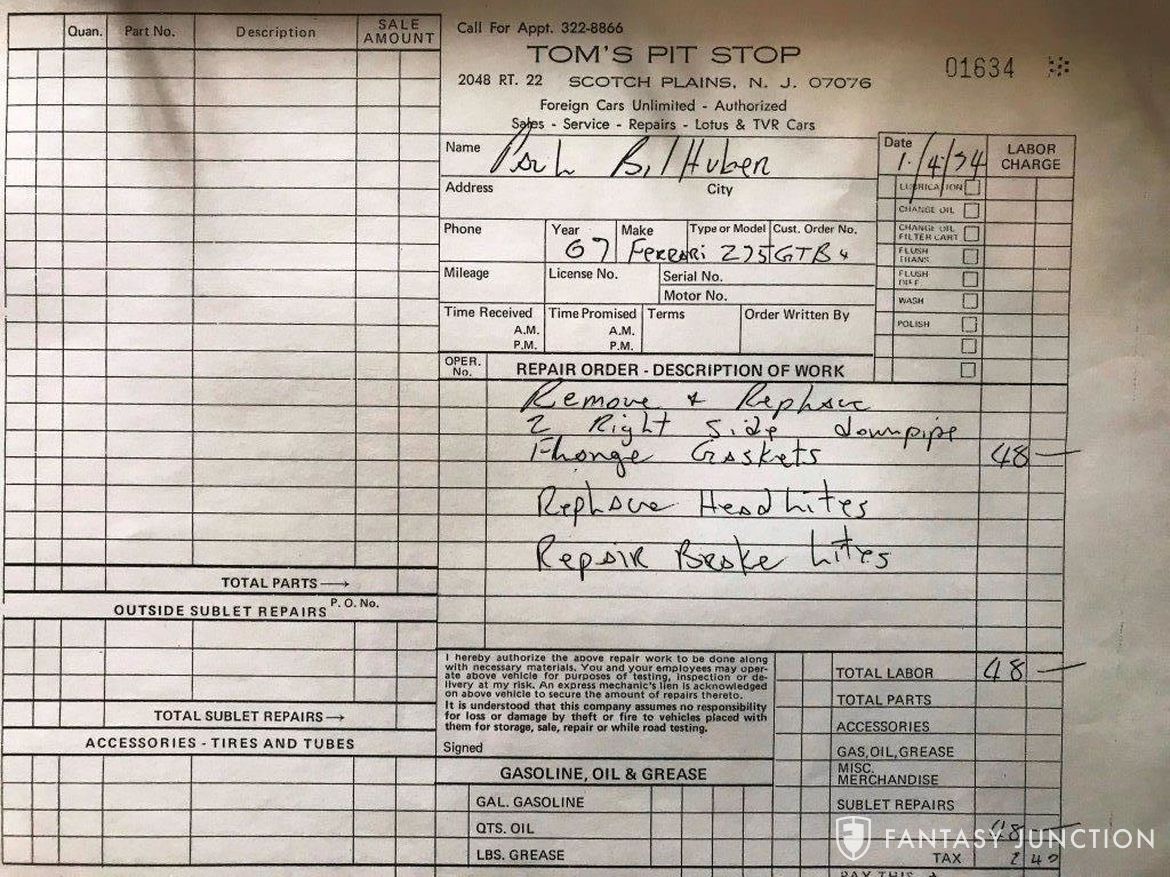 Quan. Part No. Description SALE AMOUNT
Call For Appt. 322-8866
TOM'S PIT STOP
2048 RT. 22 SCOTCH PLAINS, N. J. 07076
01634
Foreign Cars Unlimited - Authorized
Sales - Service - Repairs - Lotus & TVR Cars
Name Bill Huber
Date 1/4/74
LABOR CHARGE
Address City
LUBRICATION
CHANGE OIL
CHANGE OIL FILTER CART
FLUSH TRANS.
FLUSH DIFF.
WASH
POLISH
Phone Year 67 Make Ferrari Type or Model 275 Cust. Order No. GTB 4
Mileage License No. Serial No.
Motor No.
Time Received A.M. P.M. Time Promised A.M. P.M. Terms Order Written By
OPER. No. REPAIR ORDER - DESCRIPTION OF WORK
Remove & Replace
2 Right Side downpipe
Flange Gaskets 48 —
Replace Head Lites
Repair Brake Lites
TOTAL PARTS→
OUTSIDE SUBLET REPAIRS P. O. No.
TOTAL SUBLET REPAIRS→
ACCESSORIES - TIRES AND TUBES
I hereby authorize the above repair work to be done along
with necessary materials. You and your employees may oper-
ate above vehicle for purposes of testing, inspection or de-
livery at my risk. An express mechanic's lien is acknowledged
on above vehicle to secure the amount of repairs thereto.
It is understood that this company assumes no responsibility
for loss or damage by theft or fire to vehicles placed with
them for storage, sale, repair or while road testing.
Signed
GASOLINE, OIL & GREASE
GAL. GASOLINE
QTS. OIL
LBS. GREASE
TOTAL LABOR 48 —
TOTAL PARTS
ACCESSORIES
GAS, OIL, GREASE
MISC. MERCHANDISE
SUBLET REPAIRS
48 —
TAX 2 40
PAY THIS →
FANTASY JUNCTION